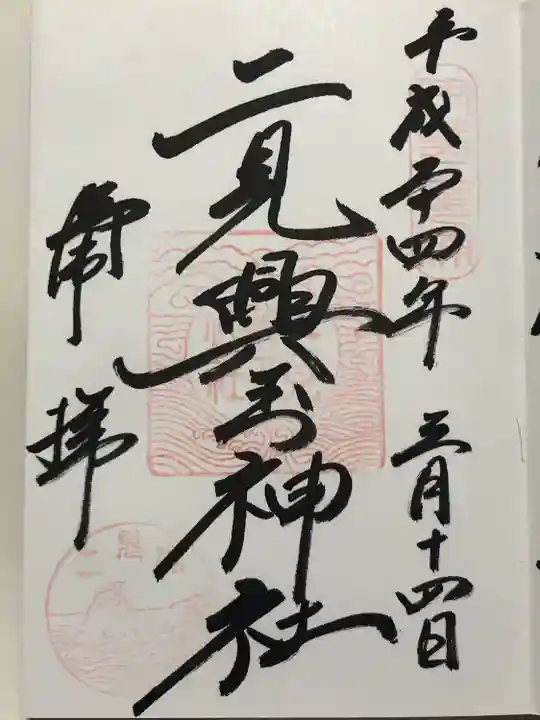 平成二十四年 三月十四日
二見興玉神社
奉拝